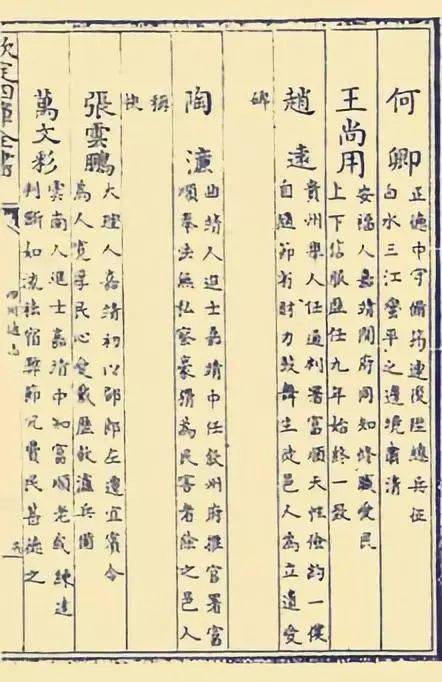 何卿
正德中守備筠連後陞總兵征
白水三江蠻平之邊境肅清
王尚用
安福人嘉靖間府同知修職愛民
上下信服歷任九年始終一致
趙遠
貴州人任通判署富順天性儉約一僕
自隨節省財力鼓舞生徒邑人為立遺愛
碑
陶
曲靖人進士嘉靖中任敘州府推官署富
順奉法無私察豪猾為民害者除之邑人
稱
快
張雲鵬
大理人嘉靖初以郎左遷宜賓令
為人寬厚民心愛戴歷敘瀘兵備
萬文彩
雲南人進士嘉靖中知富順老成練達
判斷如流祛宿弊節冗費民甚德之
欽定四庫全書
四川通志